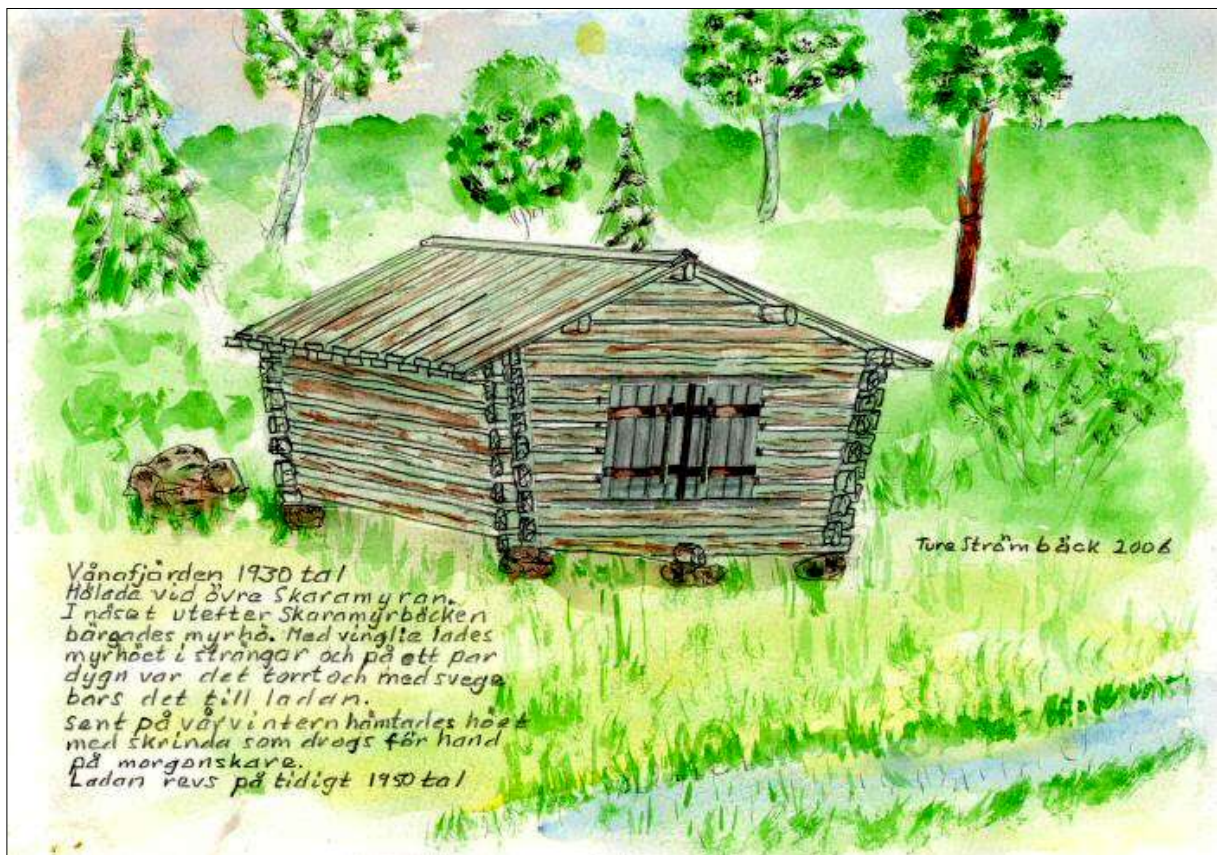 Vånafjärden 1930 tal
Hölada vid övre Skaramyran.
I näset utefter Skaramyrbäcken
bärgades myrhö. Med vinglie lades
myrhöet i strängar och på ett par
dygn var det torrt och med svege
bars det till ladan.
Sent på vårvintern hämtades höet
med skrinda som drogs för hand
på morgonskare.
Ladan revs på tidigt 1950 tal
Ture Strömbäck 2006